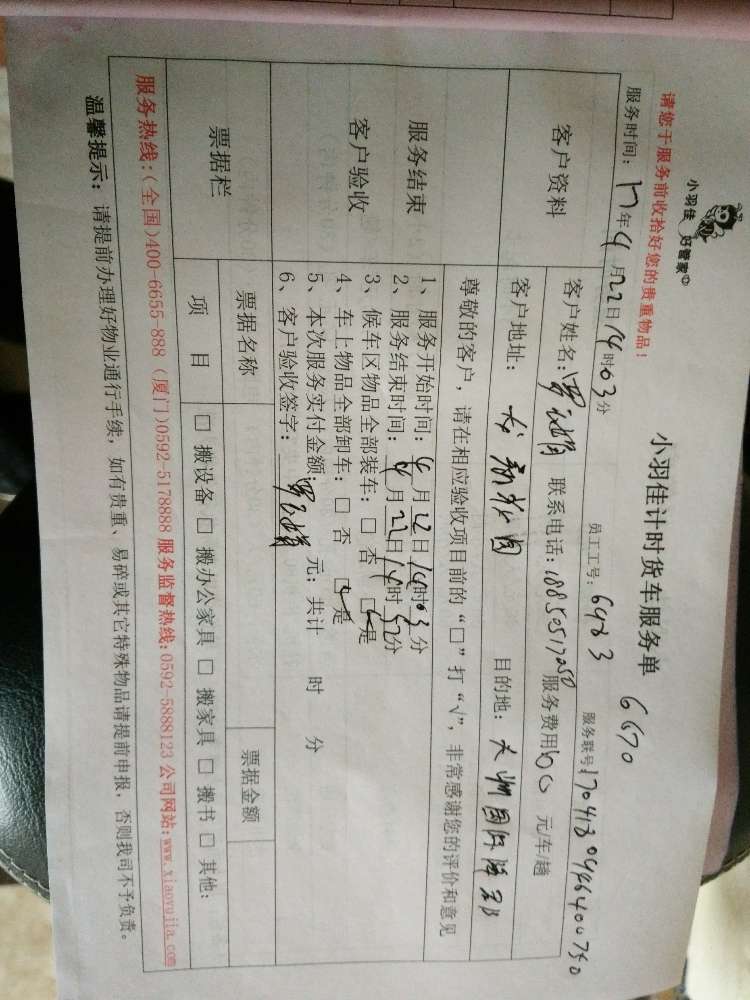 小羽佳 好管家
小羽佳计时货车服务单 6670
请您于服务前收拾好您的贵重物品！
服务时间：17年4月22日14时03分 员工工号：6983 服务联号
客户资料
客户姓名： 联系电话：18850517250 服务费用60 元/车/趟
客户地址： 目的地：
服务结束
客户验收
尊敬的客户，请在相应验收项目前的“□”打“√”，非常感谢您的评价和意见
1、服务开始时间：4月22日14时03分
2、服务结束时间：4月22日14时52分
3、候车区物品全部装车：□ 否 □是
4、车上物品全部卸车：□ 否 □是
5、本次服务实付金额： 元；共计 时 分
6、客户验收签字：
票据栏
票据名称 票据金额
项 目 □ 搬设备 □ 搬办公家具 □ 搬家具 □ 搬书 □ 其他：
服务热线：(全国)400-6655-888 (厦门)0592-5178888 服务监督热线：0592-5888123 公司网站：www.xiaoyujia.com
温馨提示：请提前办理好物业通行手续，如有贵重、易碎或其它特殊物品请提前申报，否则我司不予负责。